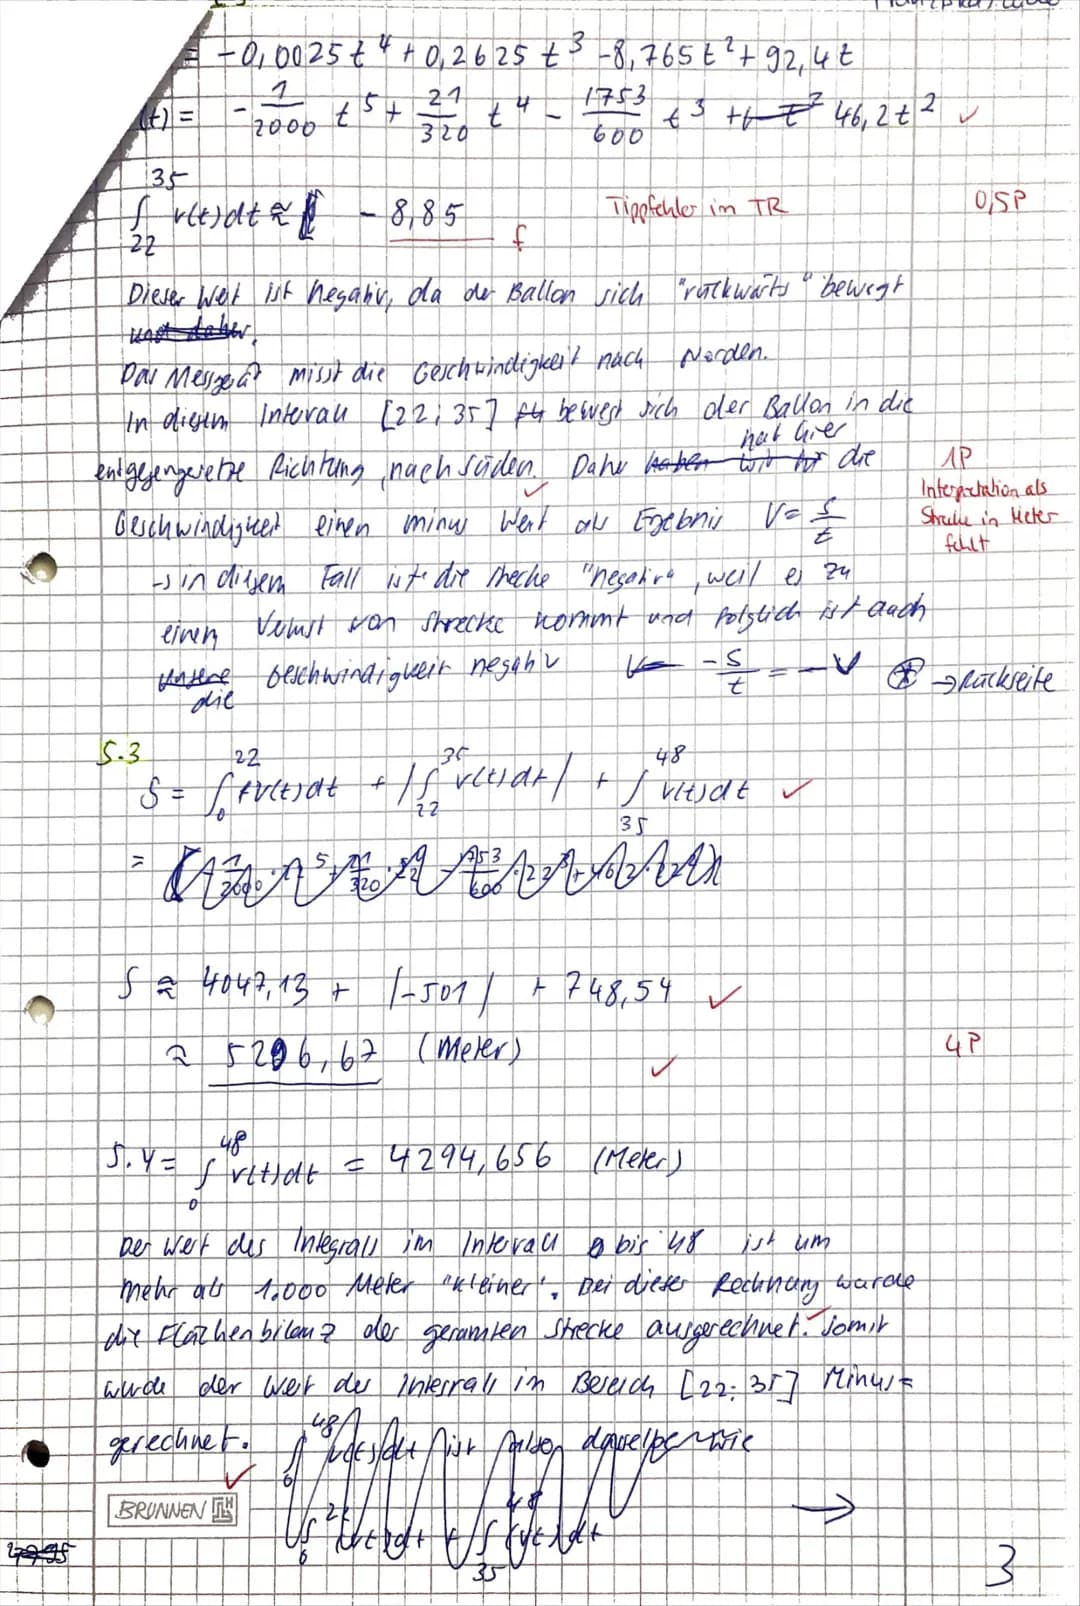 = -0,0025t⁴ + 0,2625t³ -8,765t² + 92,4t
(t) = -1/2000 t⁵ + 21/320 t⁴ - 1753/600 t³ + 46,2t² ✓
∫₂₂³⁵ v(t)dt ≈ - 8,85 f Tippfehler im TR 0,5P
Dieser Wert ist negativ, da der Ballon sich "rückwärts" bewegt
und daher.
Das Messgerät misst die Geschwindigkeit nach Norden.
In diesem Intervall [22; 35] bewegt sich der Ballon in die
entgegengesetzte Richtung, nach Süden. Daher hat hier die 1P
Interpretation als
Geschwindigkeit einen minus Wert als Ergebnis V = s/t Strecke in Meter
fehlt
→ in diesem Fall ist die Strecke "negativ", weil es zu
einem Verlust von Strecke kommt und folglich ist auch
unsere die Geschwindigkeit negativ -s/t = -v ⊛ → Rückseite
5.3
S = ∫₀²² v(t)dt + |∫₂₂³⁵ v(t)dt| + ∫₃₅⁴⁸ v(t)dt ✓
=
S ≈ 4047,13 + |-501| + 748,54 ✓
≈ 5296,67 (Meter) ✓ 4P
5.4 = ∫₀⁴⁸ v(t)dt = 4294,656 (Meter)
Der Wert des Integrals im Intervall 0 bis 48 ist um
mehr als 1.000 Meter "kleiner". Bei dieser Rechnung wurde
die Flächenbilanz der gesamten Strecke ausgerechnet. ✓ Somit
wurde der Wert des Integrals im Bereich [22; 35] Minus=
gerechnet. ✓ ∫₀⁴⁸ v(t)dt ist also dasselbe wie
BRUNNEN →
∫₃₅⁴⁸ v(t)dt
3